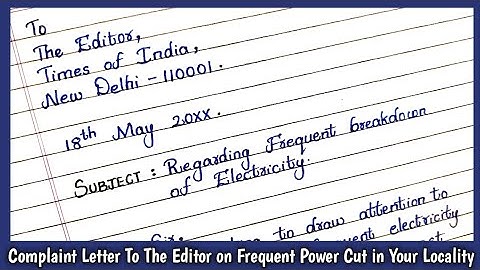 To
The Editor,
Times of India,
New Delhi - 110001.
18th May 20XX.
SUBJECT : Regarding Frequent breakdown
of Electricity.
Sir,
to draw attention to
frequent electricity
Complaint Letter To The Editor on Frequent Power Cut in Your Locality